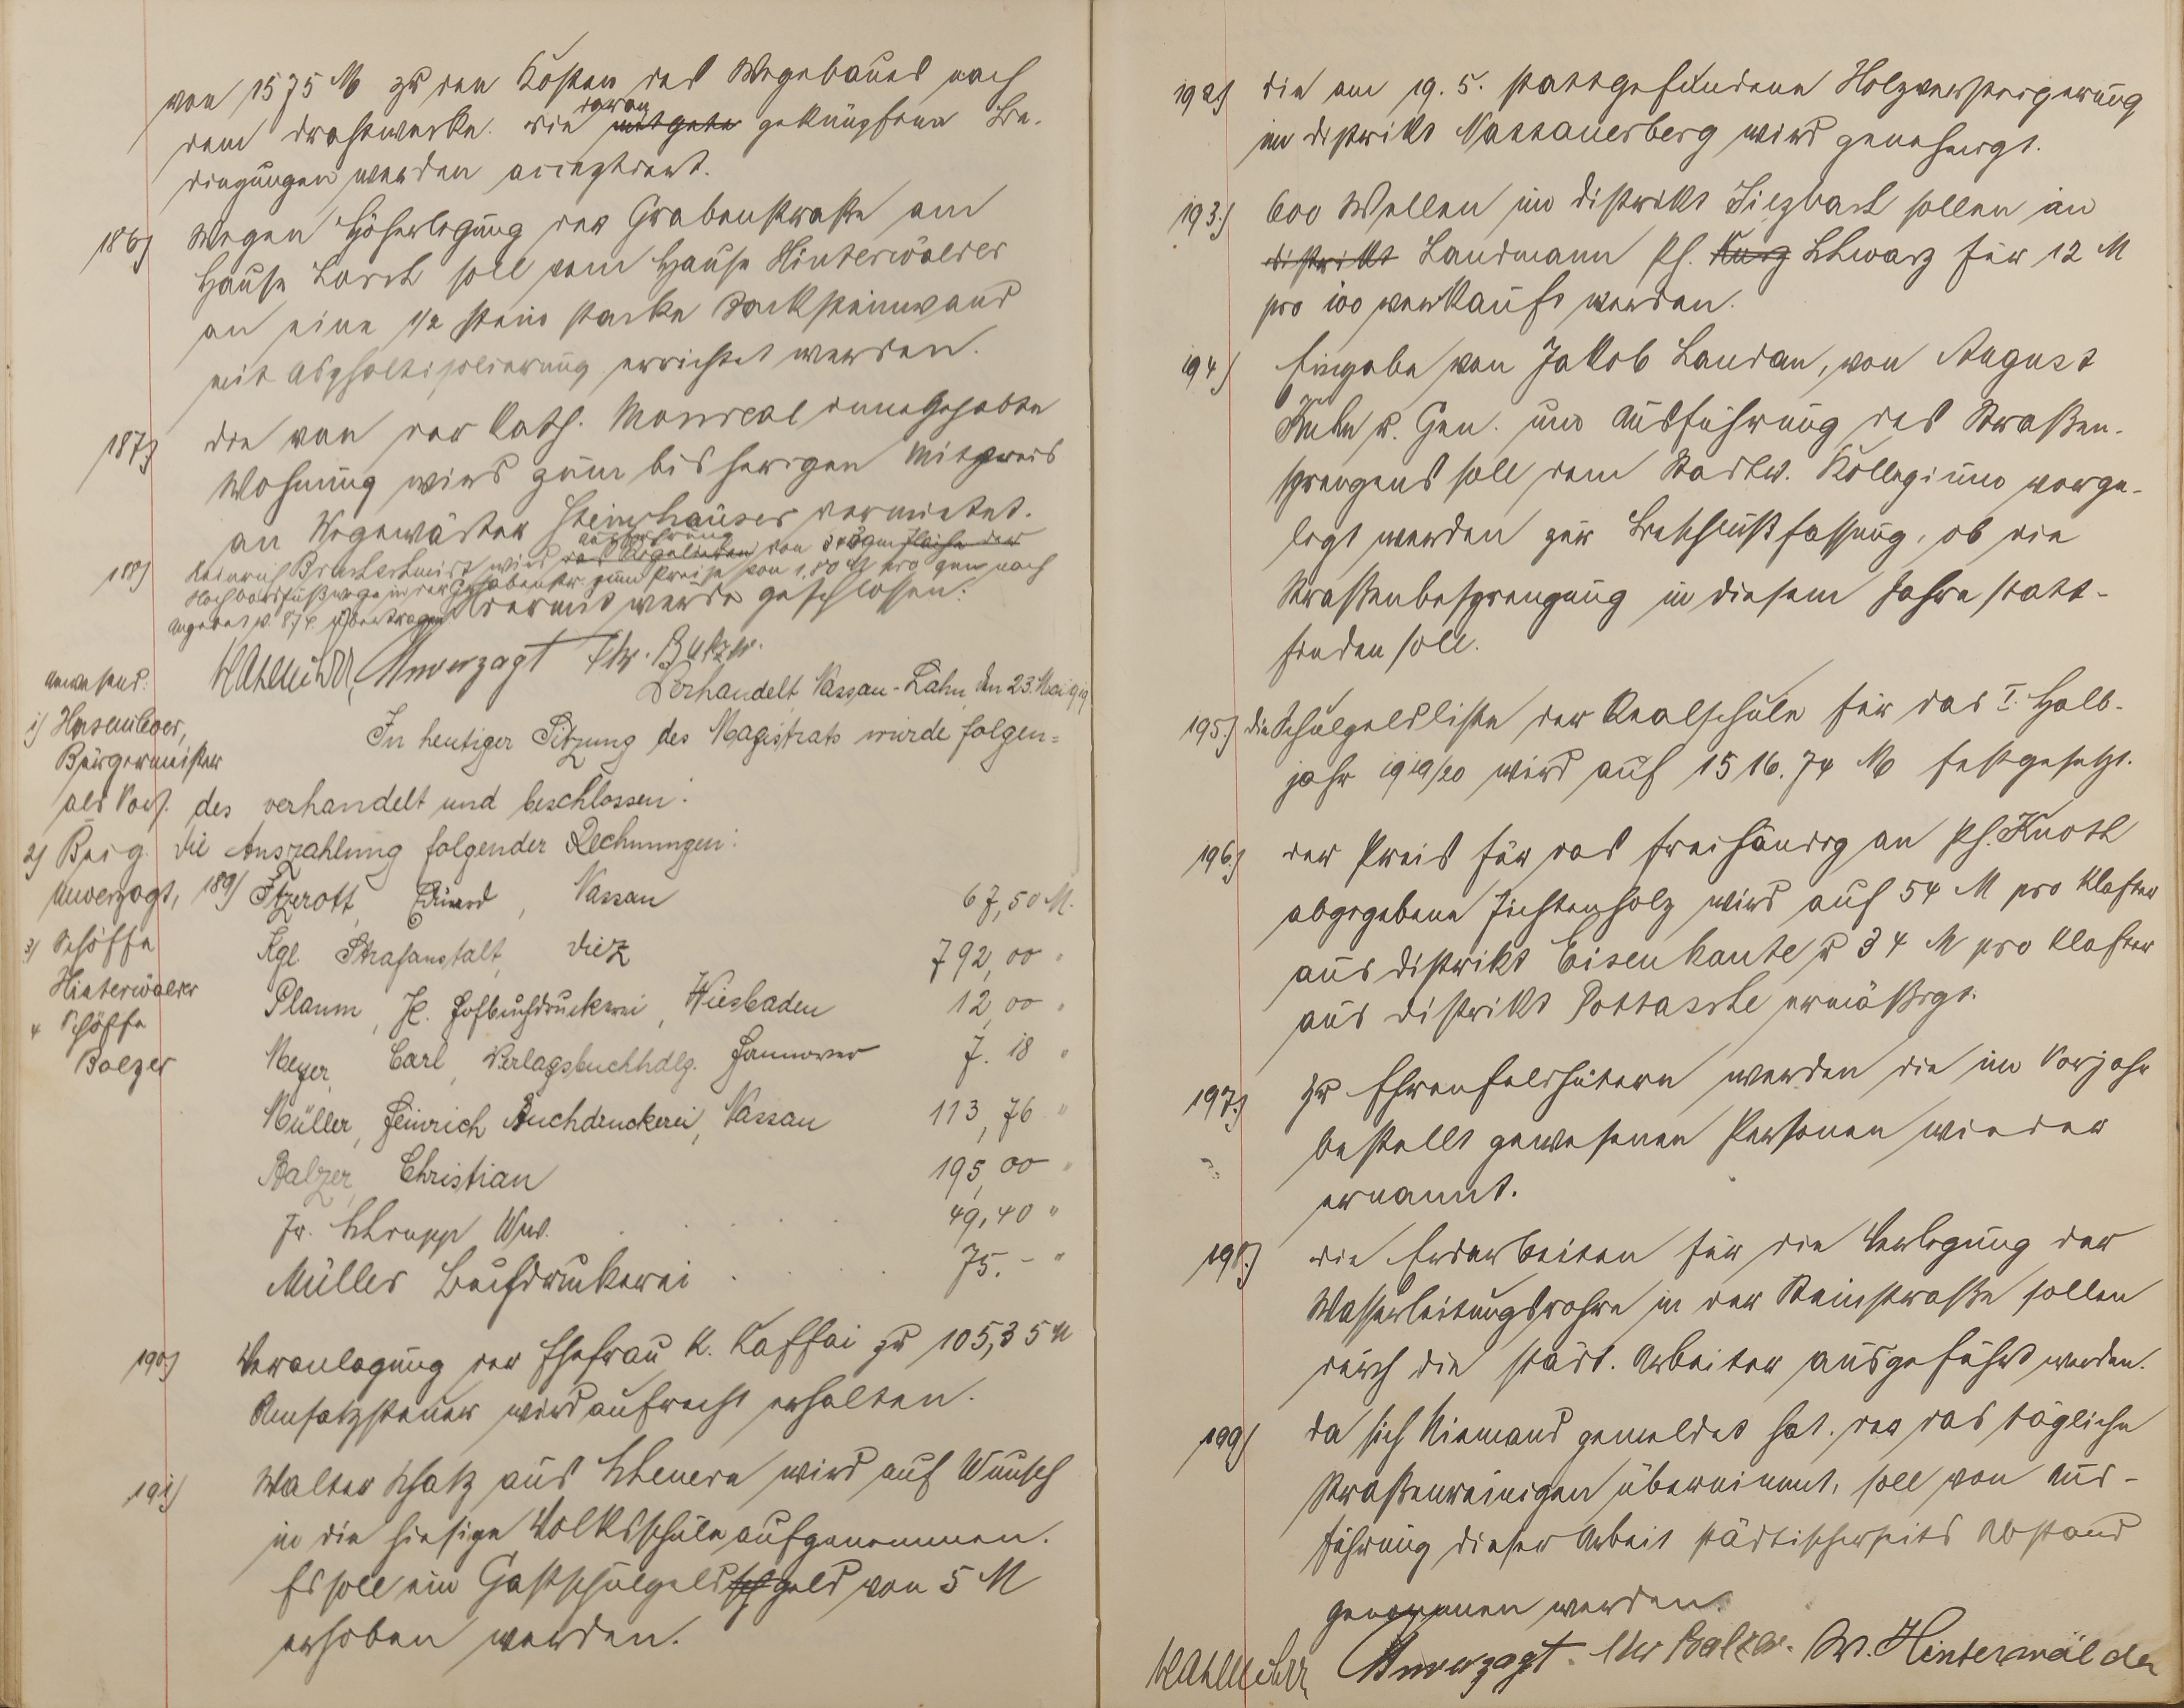 von 1575 M zu den Kosten des Wegebaues nach
dem Drahtwerke. Die daran geknüpften Be-
dingungen werden acceptiert.
186) Wegen Höherlegung der Grabenstraße am
Hause Lorch soll vom Hause Hinterwälder
an eine 1/2 Stein starke Backsteinwand
mit Asphaltisolierung errichtet werden.
187) Die von der Kath. Monreal innegehabte
Wohnung wird zum bisherigen Mietpreis
an Wegewärter Steinhäuser vermietet.
188) Heinrich Bruchschmidt wird Ausführung des von 340 qm Fläche der
Hochbordfußwege in der Grabenstr. zum Preise von 1,80 M pro qm nach
Angebot v. 8/4. übertragen
Damit wurde geschlossen:
Hasenclever, Unverzagt Chr. Balzer.
Verhandelt, Nassau-Lahn, den 23. Mai 1919
Anwesend:
1) Hasenclever,
Bürgermeister
als Vors.
2) Beig.
Unverzagt,
3) Schöffe
Hinterwälder
4 Schöffe
Balzer
In heutiger Sitzung des Magistrats wurde folgen=
des verhandelt und beschlossen:
Die Auszahlung folgender Rechnungen:
189) Itzerott, Eduard, Nassau 67,50 M.
Kgl Strafanstalt, Diez 792,00 "
Plaum, H. Hofbuchdruckerei, Wiesbaden 12,00 "
Meyer, Carl, Verlagsbuchhdlg. Hannover 7.18 "
Müller, Heinrich Buchdruckerei, Nassau 113,76 "
Balzer, Christian 195,00 "
Fr. Schrupp Ww. 49,40 "
Müller Buchdruckerei 75.- "
190) Veranlagung der Ehefrau K. Kaffai zu 105,35 M
Umsatzsteuer wird aufrecht erhalten.
191) Walter Schatz aus Scheuern wird auf Wunsch
in die hiesige Volksschule aufgenommen.
Es soll ein Gastschulgeld sch geld von 5 M
erhoben werden.
192) Die am 19. 5. stattgefundene Holzversteigerung
im Distrikt Nassauerberg wird genehmigt.
193.) 600 Wellen im Distrikt Sulzbach sollen an
Distrikt Landmann Ph. Kurz Schwarz für 12 M
pro 100 verkauft werden.
194) Eingabe von Jakob Landau, von August
Kuhn u. Gen. um Ausführung des Straßen-
sprengens soll dem Stadtv. Kollegium vorge-
legt werden zur Beschlußfassung, ob die
Straßenbesprengung in diesem Jahre statt-
finden soll.
195.) Die Schulgeldliste der Realschule für das I. Halb-
jahr 1919/20 wird auf 1516.74 M festgesetzt.
196.) Der Preis für das freihändig an Ph. Knoth
abgegebene Fichtenholz wird auf 54 M pro Klafter
aus Distrikt Eisenkaute u 34 M pro Klafter
aus Distrikt Pottasche ermäßigt.
197.) Zu Ehrenfeldhütern werden die im Vorjahr
bestellt gewesenen Personen wieder
ernannt.
198.) Die Erdarbeiten für die Verlegung der
Wasserleitungsrohre in der Steinstraße sollen
durch die städt. Arbeiter ausgeführt werden.
199) Da sich Niemand gemeldet hat, der das tägliche
Straßenreinigen übernimmt, soll von Aus-
führung dieser Arbeit städtischerseits Abstand
genommen werden.
Hasenclever Unverzagt. Chr Balzer. W. Hinterwälder